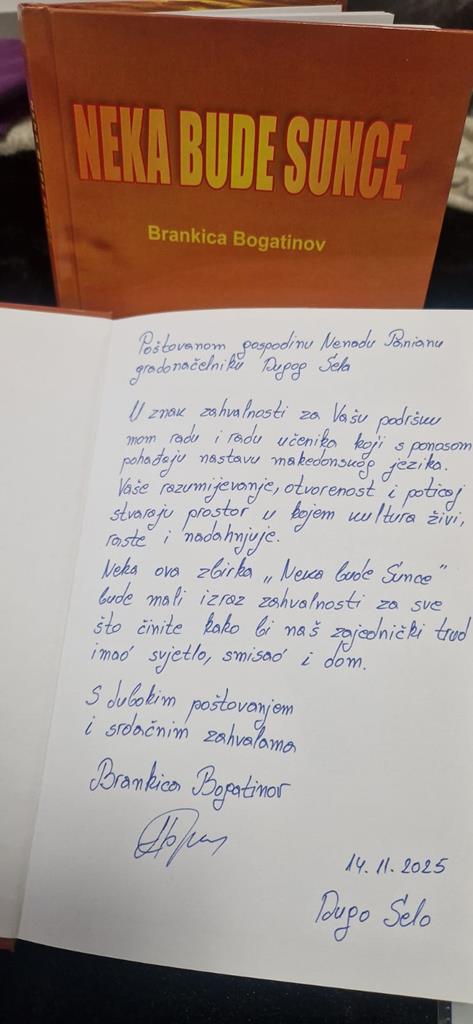 NEKA BUDE SUNCE
Brankica Bogatinov
Poštovanom gospodinu Nenadu Panianu
gradonačelniku Dugog Sela
U znak zahvalnosti za Vašu podršku
mom radu i radu učenika koji s ponosom
pohađaju nastavu makedonskog jezika.
Vaše razumijevanje, otvorenost i poticaj
stvaraju prostor u kojem kultura živi,
raste i nadahnjuje.
Neka ova zbirka „Neka bude Sunce"
bude mali izraz zahvalnosti za sve
što činite kako bi naš zajednički trud
imao svjetlo, smisao i dom.
S dubokim poštovanjem
i srdačnim zahvalama
Brankica Bogatinov
14. 11. 2025
Dugo Selo